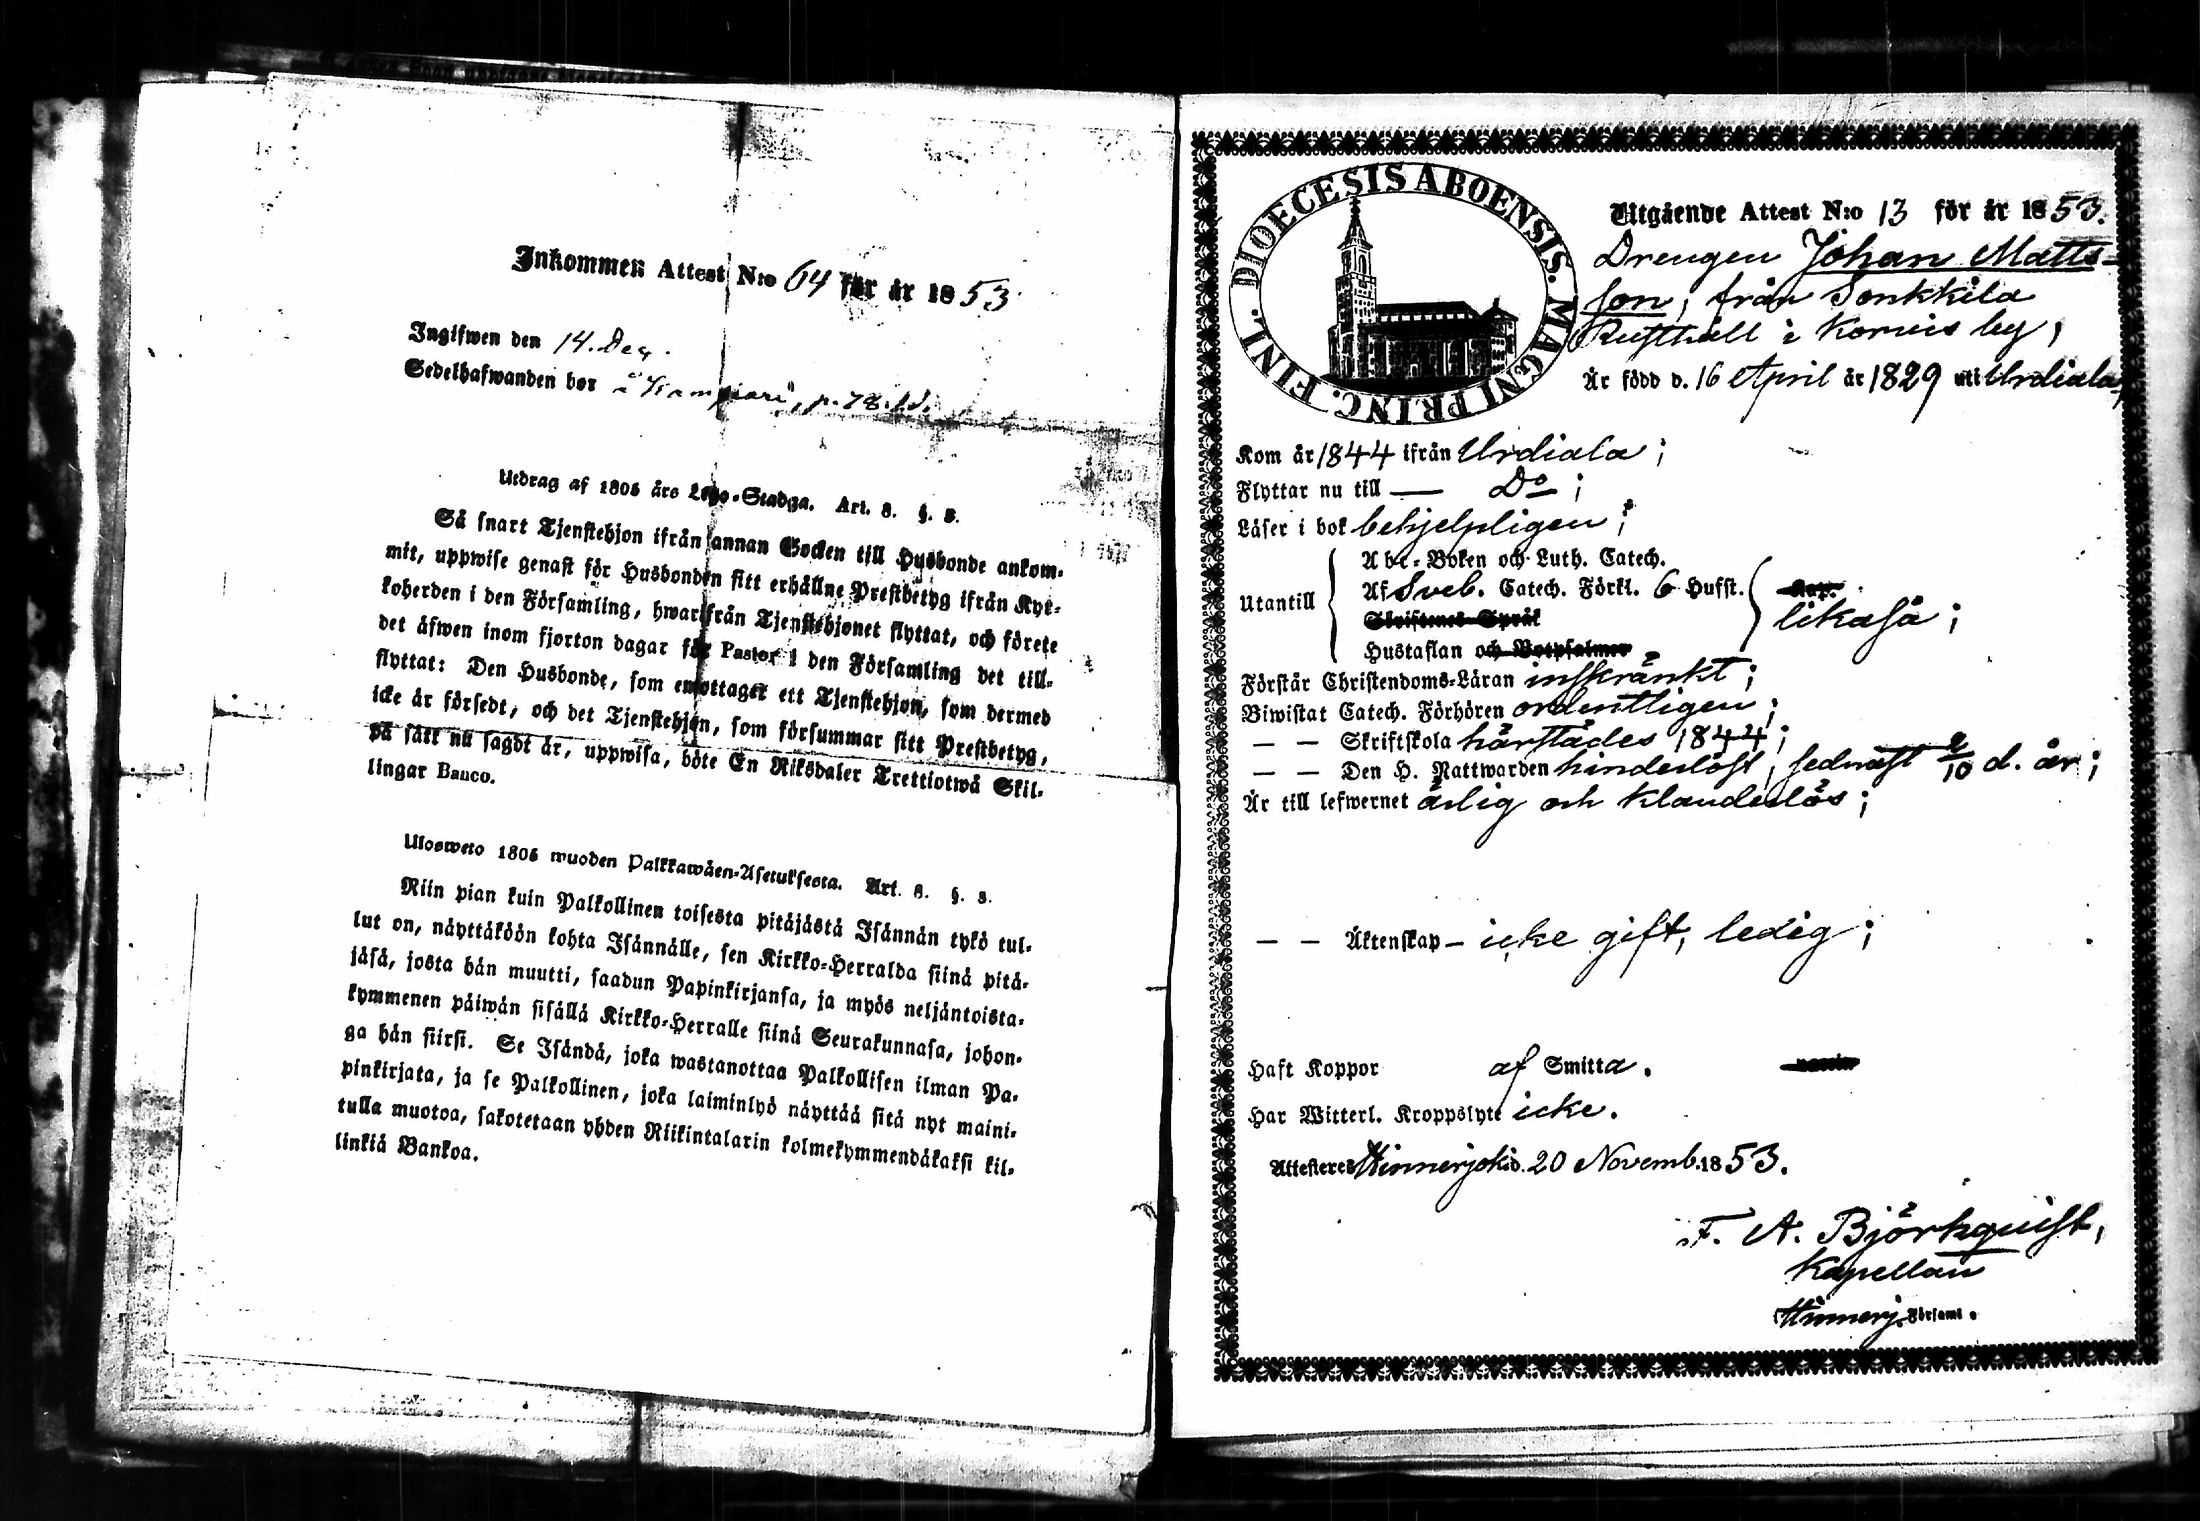 Inkommen Attest N:o 64 för år 1853
Ingifwen den 14. Dec.
Sedelhafwanden bor å Kampiari, p. 78.
Utdrag af 1805 års Lego-Stadga. Art. 8. §. 3.
Så snart Tjenstehjon ifrån annan Socken till Husbonde ankom-
mit, uppwise genast för Husbonden sitt erhållne Prestbetyg ifrån Kyr-
koherden i den Församling, hwarifrån Tjenstehjonet flyttat, och förete
det äfwen inom fjorton dagar för Pastor i den Församling det till-
flyttat: Den Husbonde, som emottager ett Tjenstehjon, som dermed
icke är försedt, och det Tjenstehjon, som försummar sitt Prestbetyg,
på sätt nu sagdt är, uppwisa, böte En Riksdaler Trettiotwå Skil-
lingar Banco.
Ulosweto 1805 wuoden Palkkawäen-Asetuksesta. Art. 8. §. 3.
Niin pian kuin Palkollinen toisesta pitäjästä Isännän tykö tul-
lut on, näyttäköön kohta Isännälle, sen Kirkko-Herralda siinä pitä-
jäsä, josta hän muutti, saadun Papinkirjansa, ja myös neljäntoista-
kymmenen päiwän sisällä Kirkko-Herralle siinä Seurakunnasa, johon-
ga hän siirsi. Se Isändä, joka wastanottaa Palkollisen ilman Pa-
pinkirjata, ja se Palkollinen, joka laiminlyö näyttää sitä nyt maini-
tulla muotoa, sakotetaan yhden Riikintalarin kolmekymmendäkaksi kil-
linkiä Bankoa.
DIOECESIS ABOENSIS. MAGNI PRINC. FINL.
Utgående Attest N:o 13 för år 1853.
Drengen Johan Matts-
son, från Sonkkila
Rusthåll i Korvis by,
Är född d. 16 April år 1829 uti Urdiala,
Kom år 1844 ifrån Urdiala;
Flyttar nu till — Do;
Läser i bok behjelpligen;
Abc-Boken och Luth. Catech.
Utantill Af Sveb. Catech. Förkl. 6 Hufst. Kap. likaså;
Skriftenes Språk
Hustaflan och Botpsalmer
Förstår Christendoms-Läran inskränkt;
Biwistat Catech. Förhören ordentligen;
— — Skriftskola härstädes 1844;
— — Den H. Nattwarden hinderlöst, sednast 2/10 d. år;
Är till lefwernet ärlig och klanderlös;
— — Äktenskap — icke gift, ledig;
Haft Koppor af Smitta.
Har Witterl. Kroppslyte icke.
Attesteres Hinnerjoki d. 20 Novemb. 1853.
F. A. Björkquist,
Kapellan
Hinnerj. Församl.